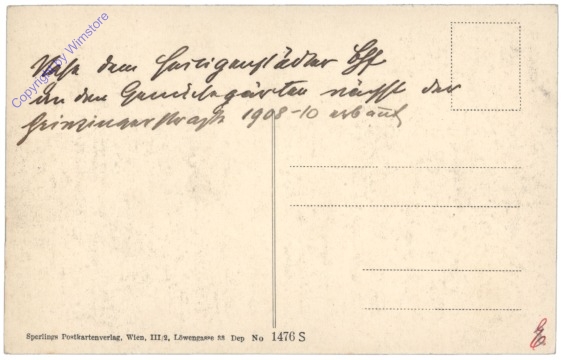 Nahe dem Heiligenstädter Bhf
in den Gemüsegärten nächst der
Grinzingerstraße 1908-10 erbaut
Copyright by Wimstore
Sperlings Postkartenverlag, Wien, III/2, Löwengasse 23 Dep No 1476 S